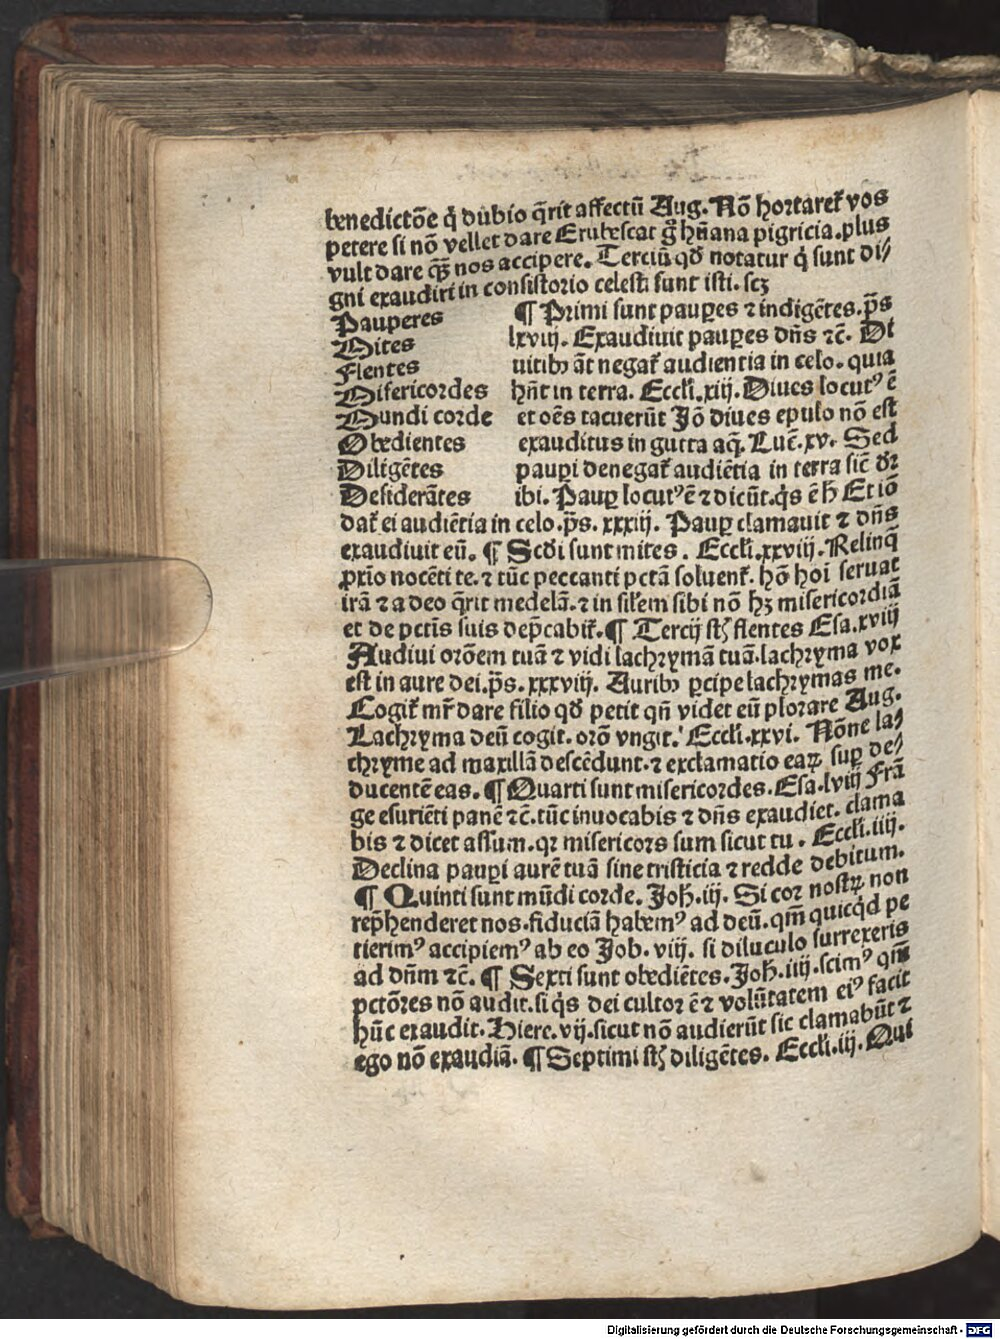 benedictõe q̇ dubio q̄rit affectũ Aug. Nõ hortaret᷑ vos
petere si nõ vellet dare Erubescat g̊ hũana pigricia. plus
vult dare q̃ȝ nos accipere. Terciũ qđ notatur q̇ sunt di⸗
gni exaudiri in consistorio celesti sunt isti. scȝ
Pauperes
Mites
Flentes
Misericordes
Mundi corde
Obedientes
Diligẽtes
Desiderãtes
¶ Primi sunt pauꝑes ⁊ indigẽtes. p̃s
lxviij. Exaudiuit pauꝑes dñs ⁊c̃. Di
uitibꝰ ãt negat᷑ audientia in celo. quia
hñt in terra. Eccli. xiij. Diues locutꝰ ẽ
et oẽs tacuerũt Jõ diues epulo nõ est
exauditus in gutta aq̃. Luc̃. xv. Sed
pauꝑi denegat᷑ audiẽtia in terra sic̃ dr̃
ibi. Pauꝑ locutꝰ ẽ ⁊ dicũt. q̇s ẽ ħ Et iõ
dat᷑ ei audiẽtia in celo. p̃s. xxxiij. Pauꝑ clamauit ⁊ dñs
exaudiuit eũ. ¶ Scđi sunt mites. Eccli. xxviij. Relinq̃
ꝓxĩo nocẽti te. ⁊ tũc peccanti pctã soluent᷑. hõ hoĩ seruat
irã ⁊ a deo q̃rit medelã. ⁊ in silẽm sibi nõ hȝ misericordiã
et de pctĩs suis dep̃cabit᷑. ¶ Tercij st̃ flentes Esa. xviij
Audiui orõem tuã ⁊ vidi lachrymã tuã. lachryma vox
est in aure dei. p̃s. xxxviij. Auribꝰ ꝑcipe lachrymas me.
Cogit᷑ mr̃ dare filio qđ petit qñ videt eũ plorare Aug.
Lachryma deũ cogit. orõ vngit. Eccli. xxvi. Nõne la⸗
chryme ad maxillã descẽdunt. ⁊ exclamatio eaꝝ suꝑ de⸗
ducentẽ eas. ¶ Quarti sunt misericordes. Esa. lviij Frã
ge esuriẽti panẽ ⁊c̃. tũc inuocabis ⁊ dñs exaudiet. clama
bis ⁊ dicet assum. qꝛ misericors sum sicut tu. Eccli. iiij.
Declina pauꝑi aurẽ tuã sine tristicia ⁊ redde debitum.
¶ Quinti sunt mũdi corde. Joh̃. iij. Si cor nostꝝ non
rep̃henderet nos. fiduciã habemꝰ ad deũ. qm̃ quicq̇d pe
tierimꝰ accipiemꝰ ab eo Job. viij. si diluculo surrexeris
ad dñm ⁊c̃. ¶ Sexti sunt obediẽtes. Joh̃. iiij. scimꝰ qm̃
pctõres nõ audit. si q̇s dei cultor ẽ ⁊ volũtatem eiꝰ facit
hũc exaudit. Hiere. vij. sicut nõ audierũt sic clamabũt ⁊
ego nõ exaudiã. ¶ Septimi st̃ diligẽtes. Eccli. iij. Qui
Digitalisierung gefördert durch die Deutsche Forschungsgemeinschaft - DFG